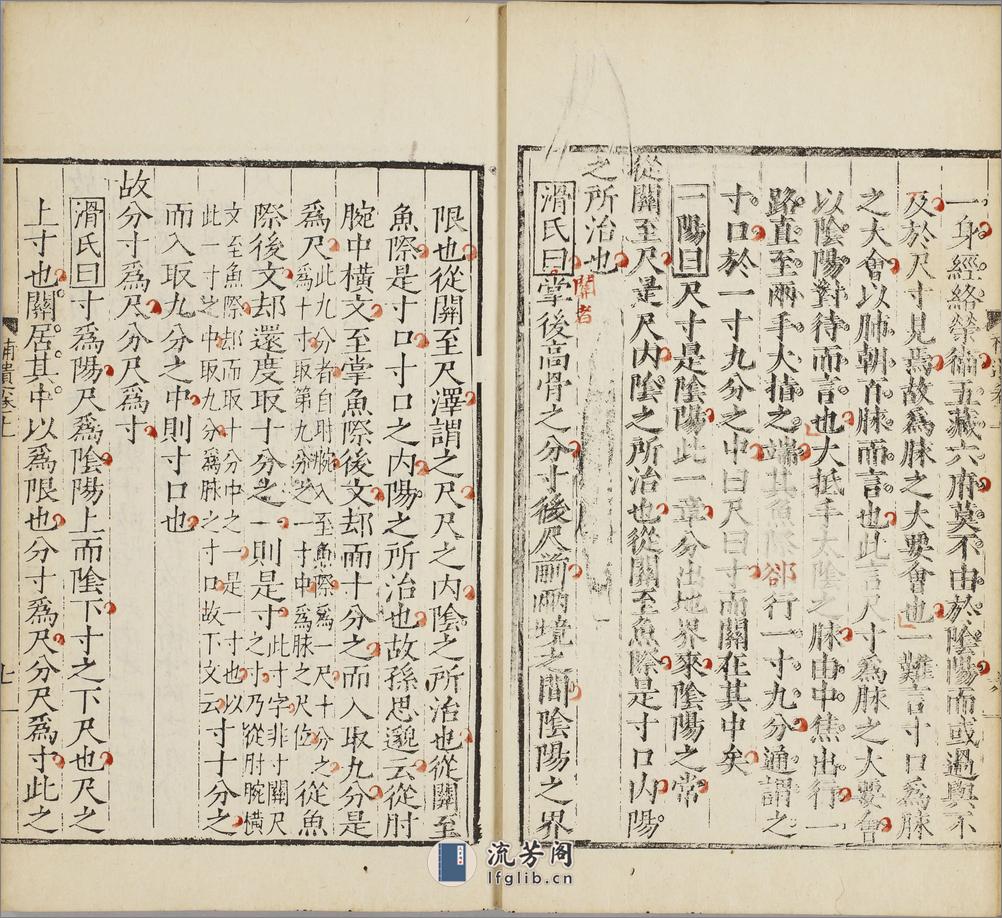 一身經絡榮衛五藏六府莫不由於陰陽而或過與不
及於尺寸見焉故爲脉之大要會也一難言寸口爲脉
之大會以肺朝百脉而言也此言尺寸爲脉之大要會
以陰陽對待而言也大抵手太陰之脉由中焦出行一
路直至兩手大指之端其魚際郤行一寸九分通謂之
寸口於一寸九分之中曰尺曰寸而關在其中矣
一陽曰尺寸是陰陽此一章分出地界來陰陽之常
從關至尺是尺內陰之所治也從關至魚際是寸口內陽
之所治也
關者
滑氏曰掌後高骨之分寸後尺前兩境之間陰陽之界
限也從關至尺澤謂之尺尺之內陰之所治也從關至
魚際是寸口寸口之內陽之所治也故孫思邈云從肘
腕中橫文至掌魚際後文却而十分之而入取九分是
爲尺此九分者自肘腕入至魚際爲一尺十分之
爲十寸取第九分之一寸中爲脉之尺位從魚
際後文却還度取十分之一則是寸此十字非寸關尺
之寸乃從肘腕橫
文至魚際却而取十分中之一是一寸也以
此一寸之中取九分爲脉之寸口故下文云寸十分之
而入取九分之中則寸口也
故分寸爲尺分尺爲寸
滑氏曰寸爲陽尺爲陰陽上而陰下寸之下尺也尺之
上寸也關居其中以爲限也分寸爲尺分尺爲寸此之
流芳阁
lfglib.cn